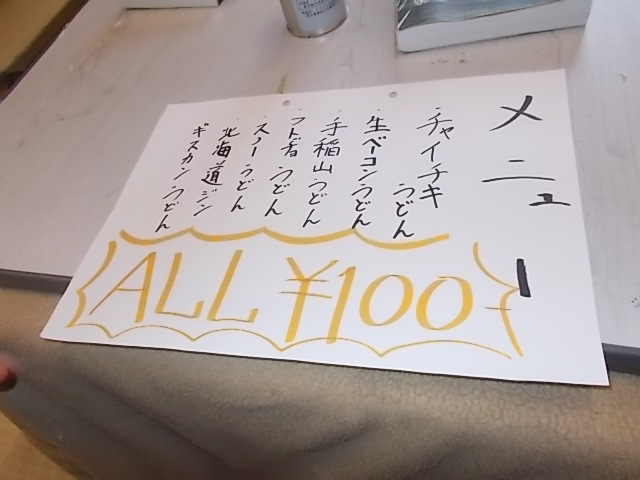 メニュー
・チャイチキうどん
・生ベーコンうどん
・手稲山うどん
・フト者うどん
・スノーうどん
・北海道ジンギスカンうどん
ALL ¥100